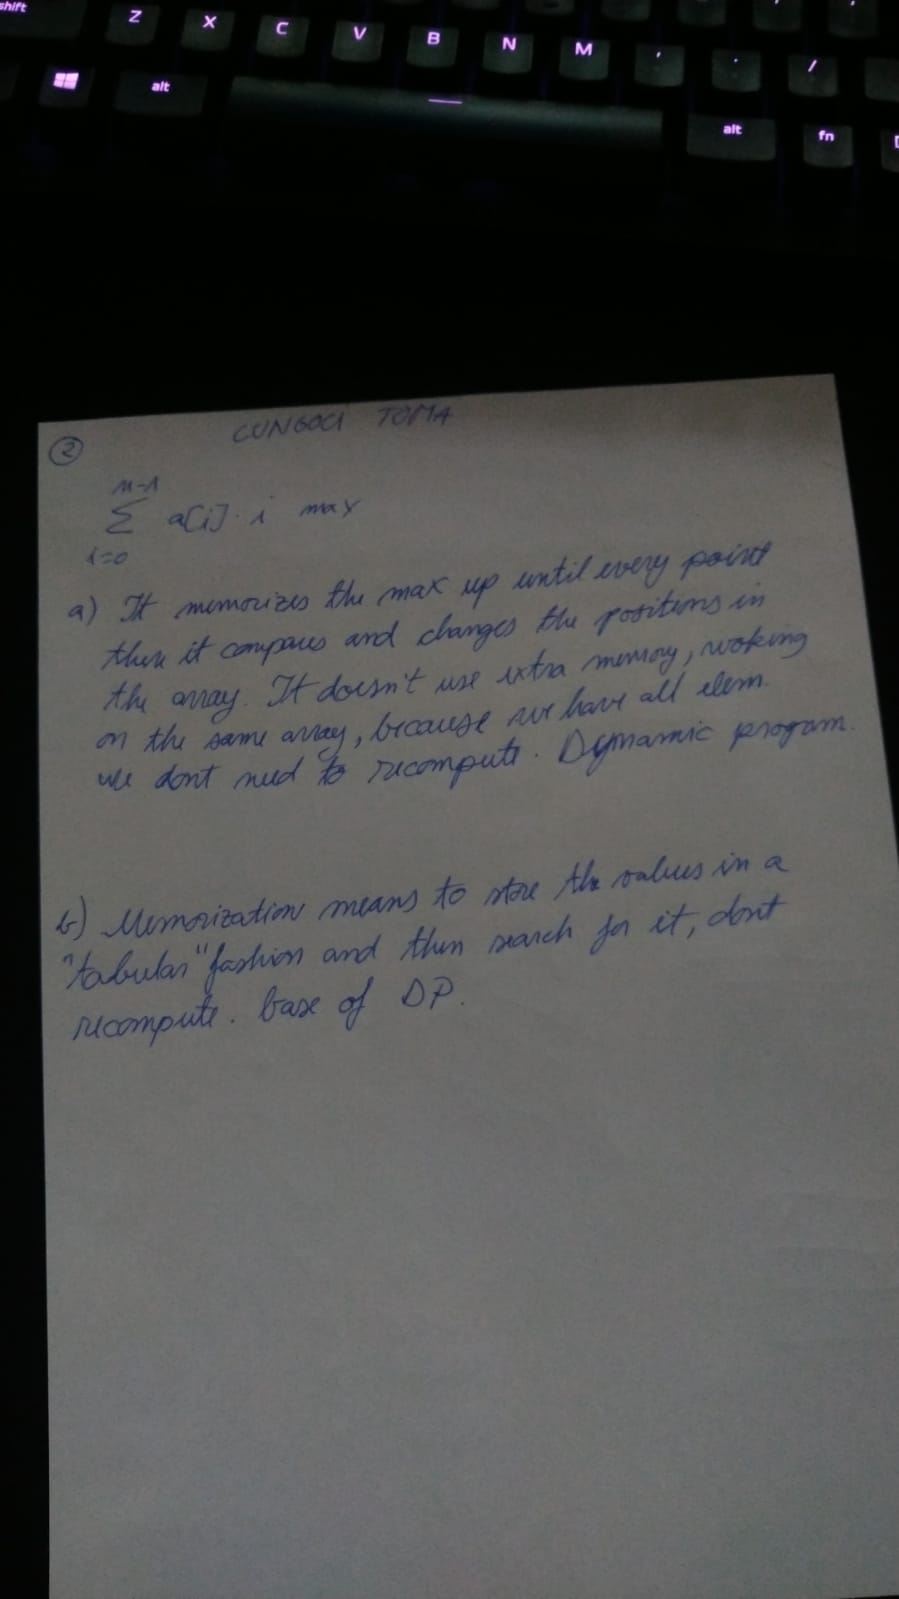 shift
Z X C V B N M , . /
alt alt fn
2
CUNGOCI TOMA
n-1
Σ a[i] · i max
i=0
a) It memorizes the max up until every point
then it compares and changes the positions in
the array. It doesn't use extra memory, woking
on the same array, because we have all elem.
we dont need to recompute. Dynamic program.
b) Memorization means to store the values in a
"tabular" fashion and then search for it, dont
recompute. base of DP.